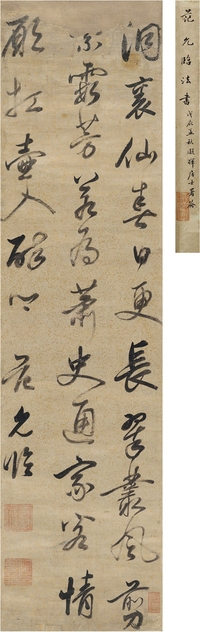 洞裏仙春日更長翠叢風剪
紫霞芳若為蕭史通家客情
願扛壺入醉鄉 范允臨
范允臨法書